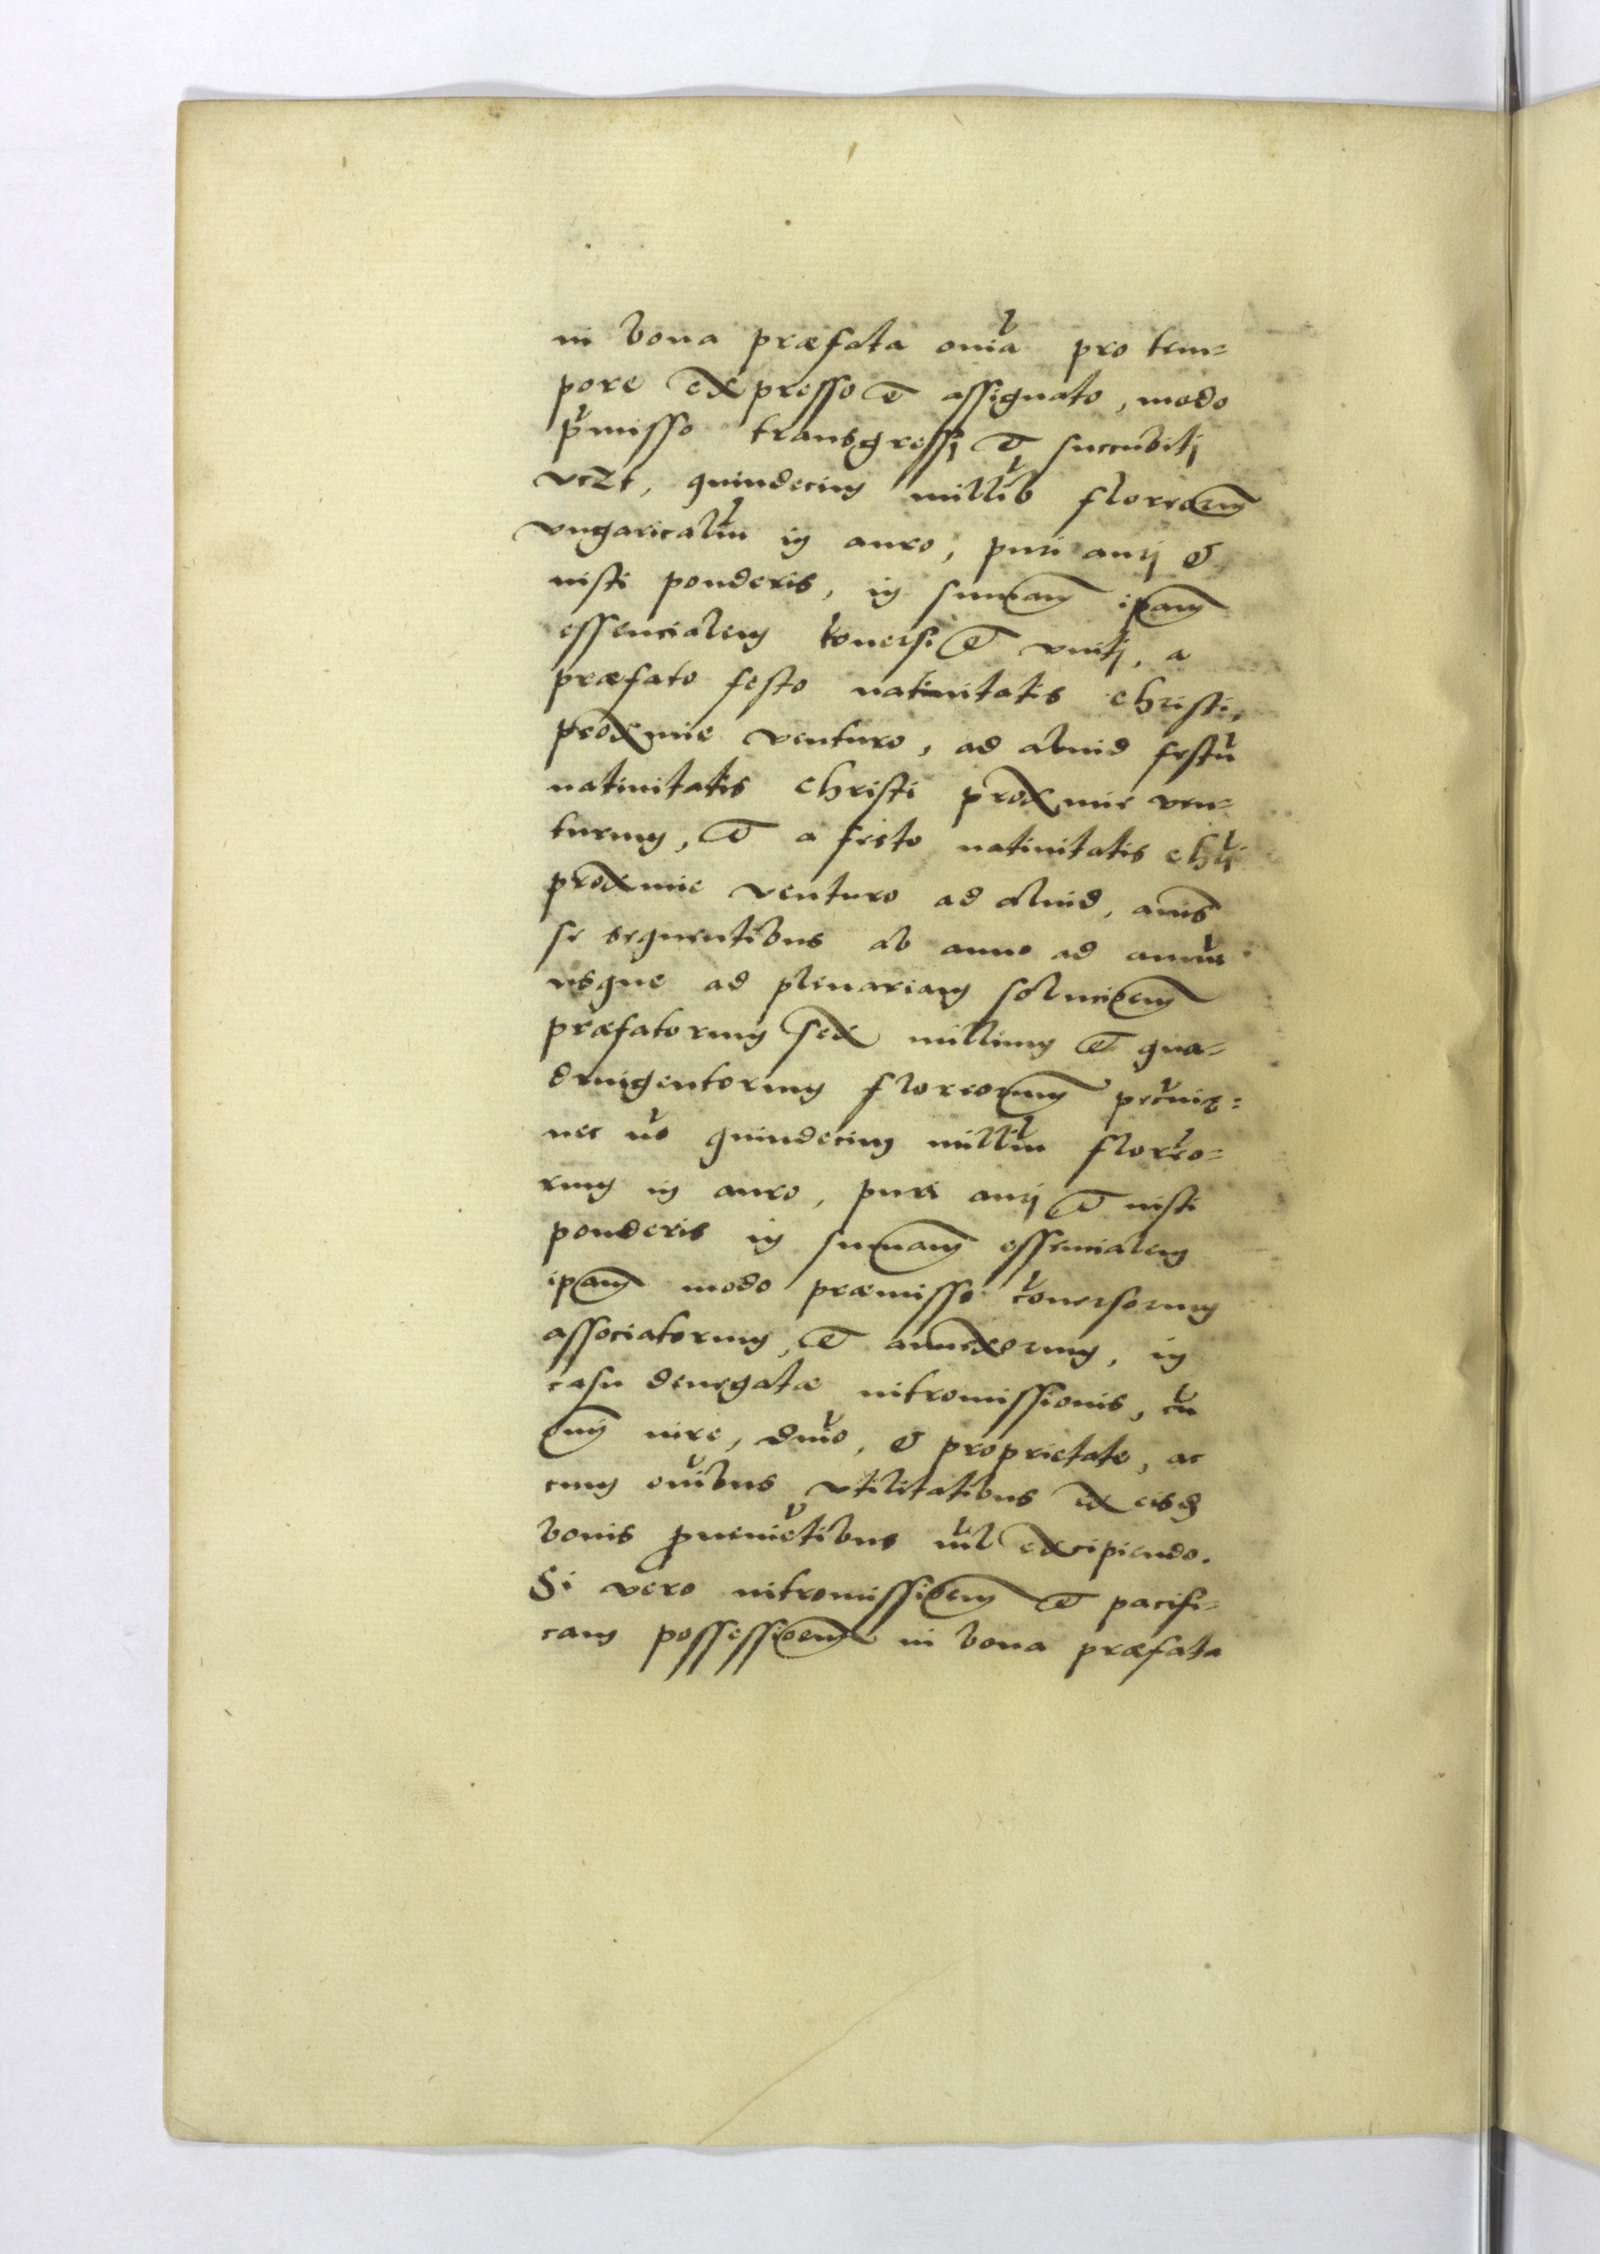 in bona præfata om̃ia pro tem-
pore expresso et assignato, modo
p̃misso transgressi et succubiti
vczt, quindecim millib̃ floreorum
vngaricaliũ in auro, puri auri &
iusti ponderis, in summam ipam
essencialem conuersi et uniti, a
præfato festo natiuitatis Christi,
proxime venturo, ad aliud festũ
natiuitatis Christi proxime ven-
turum, et a festo natiuitatis Chr̃i
proxime venturo ad aliud, annis
se sequentibus ab anno ad annũ
usque ad plenariam solucioem
præfatorum sex millium et qua-
dringentorum floreorum pecũię
nec nõ quindecim milliũ floreo-
rum in auro, puri auri et iusti
ponderis in summam essencialem
ipam modo præmisso cõuersorum
associatorum, et annexorum, in
casu denegatæ intromissionis, cũ
omni iure, dñio, & proprietate, ac
cum om̃ibus vtilitatibus ex eisdem
bonis prouenie͂tibus nil̃ excipiendo.
Si vero intromissioem et pacifi-
cam possessioem in bona præfata